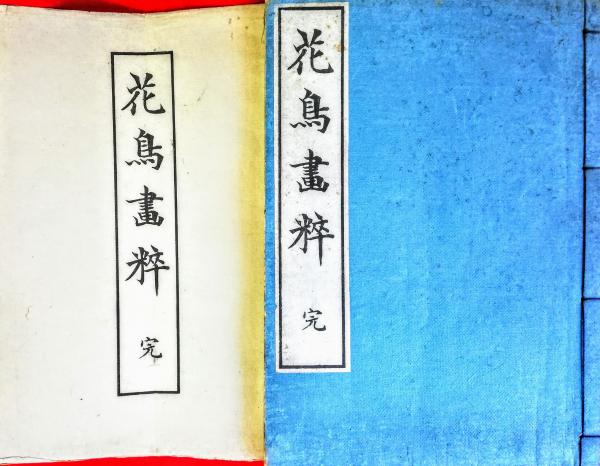 花鳥畫粹 完
花鳥畫粹 完